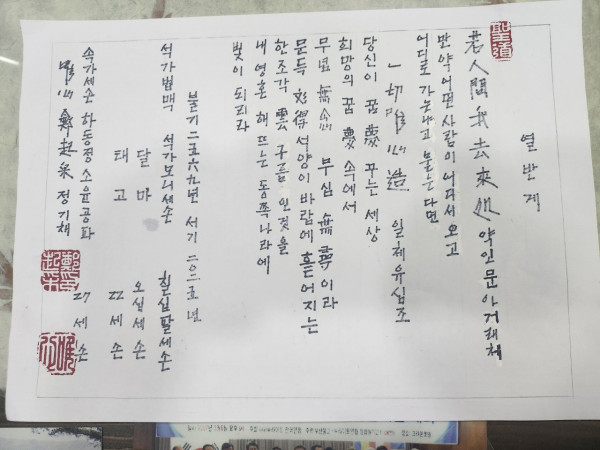 열반게
若人問我去來処 약인문아거래처
만약 어떤 사람이 어디서 오고
어디로 가는냐고 물는다면
一切唯心造 일체유심조
당신이 꿈 夢 꾸는 세상
희망의 꿈 夢 속에서
무념 無念 무심 無尋이라
문득 석양이 바람에 흩어지는
한조각 雲 구름인것을
내 영혼 해 뜨는 동쪽나라에
빛이 되리라
불기 二五六九년 서기 二０二五년
석가법맥 석가모니세손 칠십팔세손
달마 오십세손
태고 22세손
속가세손 하동정소윤공파 27세손
唯心 鄭起采 정기채
聖道